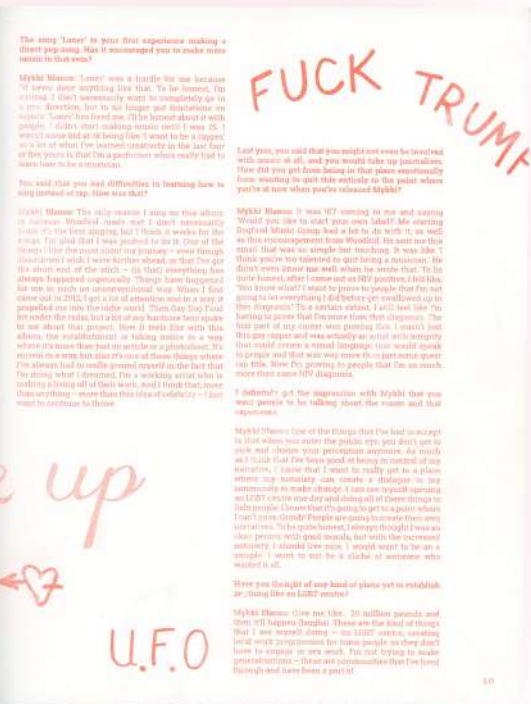 The song 'Loner' is your first experience making a
direct pop song. Has it encouraged you to make more
music in that vein?
Mykki Blanco: 'Loner' was a hurdle for me because
I'd never done anything like that. To be honest, I'm
I don't necessarily want to completely go in
a pop direction, but to no longer put limitations on
myself 'Loner' has freed me. I'll be honest about it with
people. I didn't start making music until I was 25. I
wasn't some kid at 16 being like 'I want to be a rapper,'
so a lot of what I've learned creatively in the last four
or five years is that I'm a performer who's really had to
learn how to be a musician.
You said that you had difficulties in learning how to
sing instead of rap. How was that?
Mykki Blanco: The only reason I sing on this album
is because Woodkid made me! I don't necessarily
think it's the best singing, but I think it works for the
songs. I'm glad that I was pushed to do it. One of the
things I like the most about my journey – even though
sometimes I wish I were further ahead, or that I've got
the short end of the stick – (is that) everything has
always happened organically. Things have happened
for me in such an unconventional way. When I first
came out in 2012, I got a lot of attention and in a way, it
propelled me into the indie world. Then Gay Dog Food
hit under the radar, but a lot of my hardcore fans spoke
to me about that project. Now it feels like with this
album, the establishment is taking notice in a way
where it's more than just an article or a photoshoot. It's
surreal in a way, but also it's one of those things where
I've always had to really ground myself in the fact that
I'm doing what I dreamed. I'm a working artist who is
making a living off of their work. And I think that, more
than anything – more than this idea of celebrity – I just
want to continue to thrive.
up
U.F.O
FUCK TRUMP
Last year, you said that you might not even be involved
with music at all, and you would take up journalism.
How did you get from being in that place emotionally
from wanting to quit this entirely to the point where
you're at now when you've released Mykki?
Mykki Blanco: It was !K7 coming to me and saying
'Would you like to start your own label?' Me starting
Dogfood Music Group had a lot to do with it, as well
as this encouragement from Woodkid. He sent me this
email that was so simple but touching. It was like 'I
think you're too talented to quit being a musician.' He
didn't even know me well when he wrote that. To be
quite honest, after I came out as HIV positive, I felt like,
'You know what? I want to prove to people that I'm not
going to let everything I did before get swallowed up in
this diagnosis.' To a certain extent, I still feel like I'm
having to prove that I'm more than that diagnosis. The
first part of my career was proving that I wasn't just
this gay rapper and was actually an artist with integrity
that could create a visual language that would speak
to people and that was way more than just some queer
rap title. Now I'm proving to people that I'm so much
more than some HIV diagnosis.
I definitely got the impression with Mykki that you
want people to be talking about the music and that
experience.
Mykki Blanco: One of the things that I've had to accept
is that when you enter the public eye, you don't get to
pick and choose your perception anymore. As much
as I think that I've been good at being in control of my
narrative, I know that I want to really get to a place
where my notoriety can create a dialogue in my
community to make change. I can see myself opening
an LGBT centre one day and doing all of these things to
help people. I know that it's going to get to a point where
People are going to create their own
narratives. To be quite honest, I always thought I was an
okay person with good morals, but with the increased
notoriety, I should live nice. I would want to be an e
xample. I want to not be a cliché of someone who
wasted it all.
Have you thought of any kind of plans yet to establish
anything like an LGBT centre?
Mykki Blanco: Give me like.. 20 million pounds and
then it'll happen (laughs). These are the kind of things
that I see myself doing – an LGBT centre, creating
local work programmes for trans people so they don't
have to engage in sex work. I'm not trying to make
generalisations – these are communities that I've lived
through and have been a part of.
10